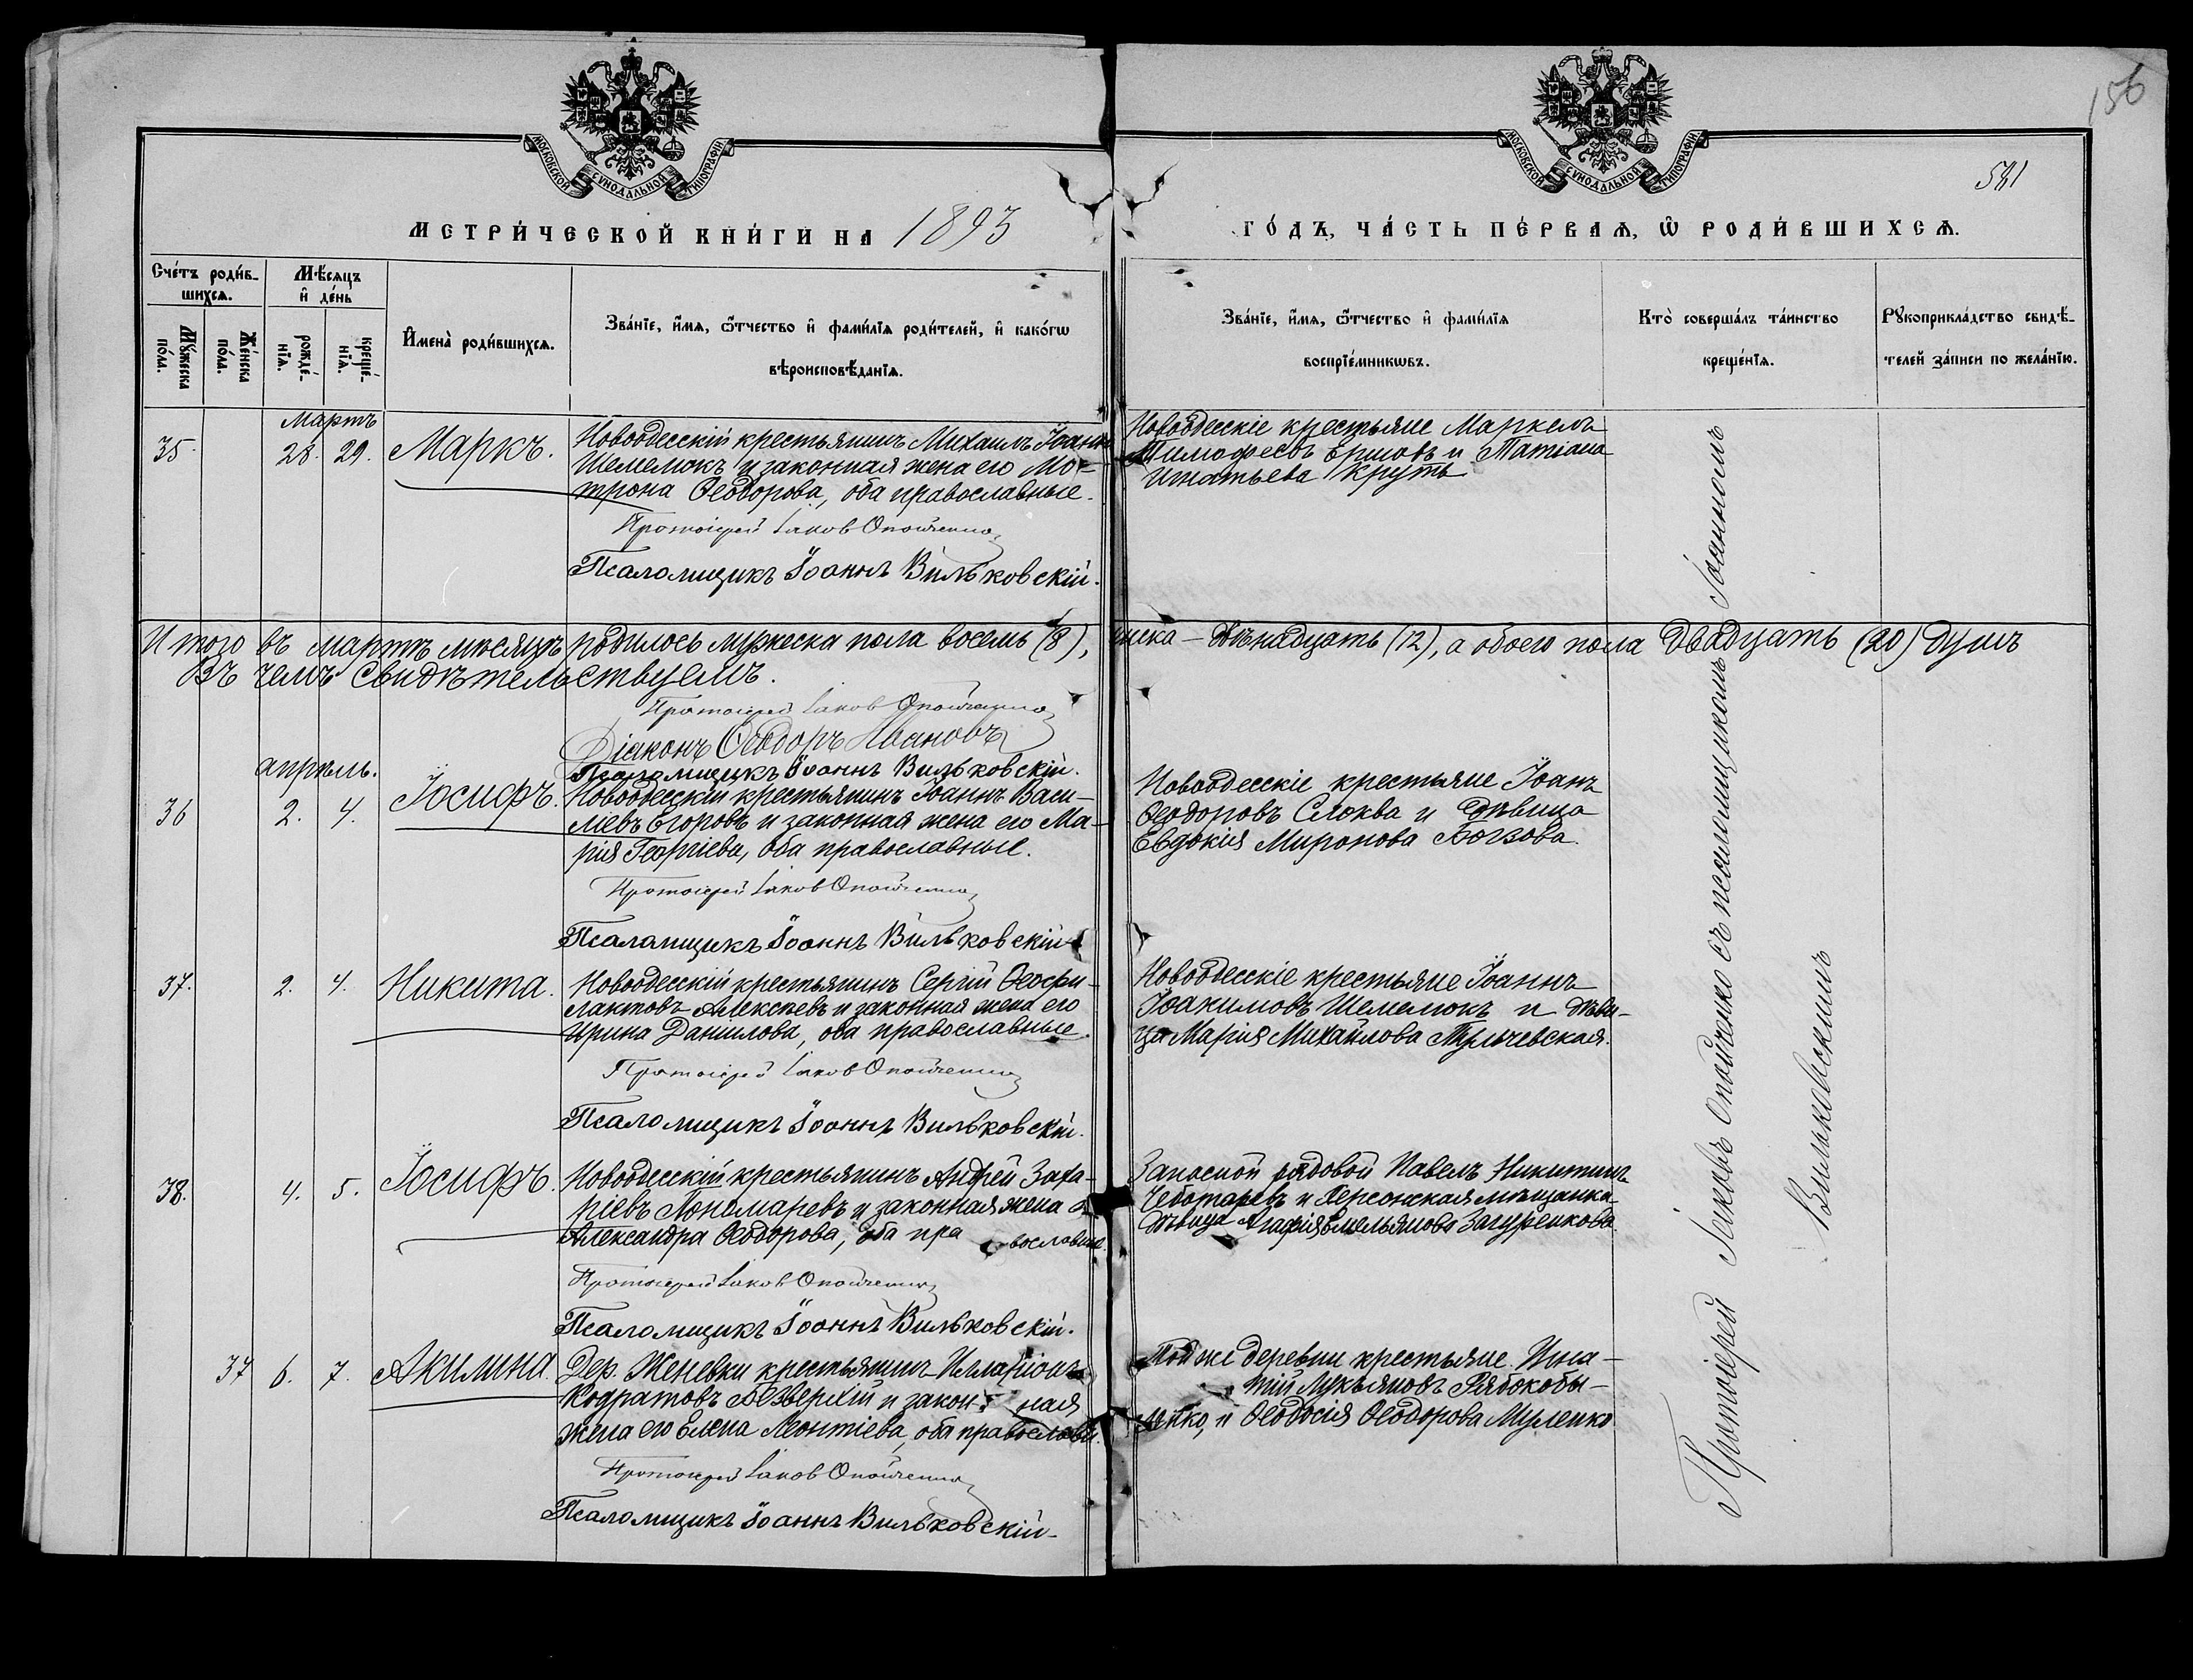 156
МОСКОВСКОЙ СѴНОДАЛЬНОЙ ТИПОГРАФІИ
МОСКОВСКОЙ СѴНОДАЛЬНОЙ ТИПОГРАФІИ
581
МЕТРИ́ЧЕСКОЙ КНИ́ГИ НА 1893
ГО́ДЪ, ЧА́СТЬ ПЕ́РВАѦ, Ѡ РОДИ́ВШИХСѦ.
Сче́тъ роди́в-
шихсѧ.
Мꙋ́жеска по́ла.
Же́нска по́ла.
Мѣ́сѧцъ и де́нь
рожде́-
нїѧ.
креще́-
нїѧ.
Имена̀ роди́вшихсѧ.
Зва́нїе, и́мѧ, ѻ́тчество и фамы́лїѧ роди́телей, и како́гѡ
вѣроисповѣ́данїѧ.
Зва́нїе, и́мѧ, ѻ́тчество и фами́лїѧ
воспрїе́мникѡвъ.
Кто̀ соверша́лъ та́инство
креще́нїѧ.
Рꙋкоприкла́дство свидѣ́-
телей за́писи по жела́нїю.
Мартъ
35. 28. 29. Маркъ.
Новоодесскій крестьянинъ Михаилъ Іоанн
Шемелюкъ и законная жена его Мо-
трона Ѳеодорова, оба православные.
Протоіерей Іаков Опойченко
Псаломщикъ Іоаннъ Вильковскій.
Новоодесскіе крестьяне Маркелъ
Тимофеевъ Ершовъ и Татіана
Игнатьева Круть
Итого въ мартѣ мѣсяцѣ родилось мужеска пола восемь (8), женска – двѣнадцать (12), а обоего пола двадцать (20) душъ
Въ чемъ свидѣтельствуемъ.
Протоіерей Іаков Опойченко
Діаконъ Ѳеодоръ Ивановъ
Псаломщикъ Іоаннъ Вильковскій.
апрѣль.
36 2. 4. Іосифъ.
Новоодесскій крестьянинъ Іоаннъ Васи-
лиевъ Егоровъ и законная жена его Ма-
рія Георгіева, оба православные.
Протоіерей Іаков Опойченко
Псаломщикъ Іоаннъ Вильковскій
Новоодесскіе крестьяне Іоаннъ
Ѳеодоровъ Слюква и дѣвица
Евдокія Миронова Богзова.
37. 2. 4. Никита.
Новоодесскій крестьянинъ Сергій Ѳеофи-
лактовъ Алексѣевъ и законная жена его
Ирина Данилова, оба православные.
Протоіерей Іаков Опойченко
Псаломщикъ Іоаннъ Вильковскій.
Новоодесскіе крестьяне Іоаннъ
Іоакимовъ Шемелюкъ и дѣви-
ца Марія Михайлова Тульчевская.
38. 4. 5. Іосифъ.
Новоодесскій крестьянинъ Андрей Заха-
ріевъ Пономаревъ и законная жена
Александра Ѳеодорова, оба православные.
Протоіерей Іаков Опойченко
Псаломщикъ Іоаннъ Вильковскій.
Запасной рядовой Павелъ Никитинъ
Чеботаревъ и Херсонская мѣщанка
дѣвица Агафія Емельянова Загуренкова.
37 6. 7. Акилина.
Дер. Женевки крестьянинъ Илларіонъ
Кодратовъ Безверхій и законная
жена его Елена Леонтіева, оба православн.
Протоіерей Іаков Опойченко
Псаломщикъ Іоаннъ Вильковскій.
Той же деревни крестьяне Игна-
тій Лукьяновъ Рябокобы-
ленко, и Ѳеодосія Ѳеодорова Муленко
Протоіерей Іаковъ Опойченко съ псаломщикомъ Іоанномъ
Вильковскимъ